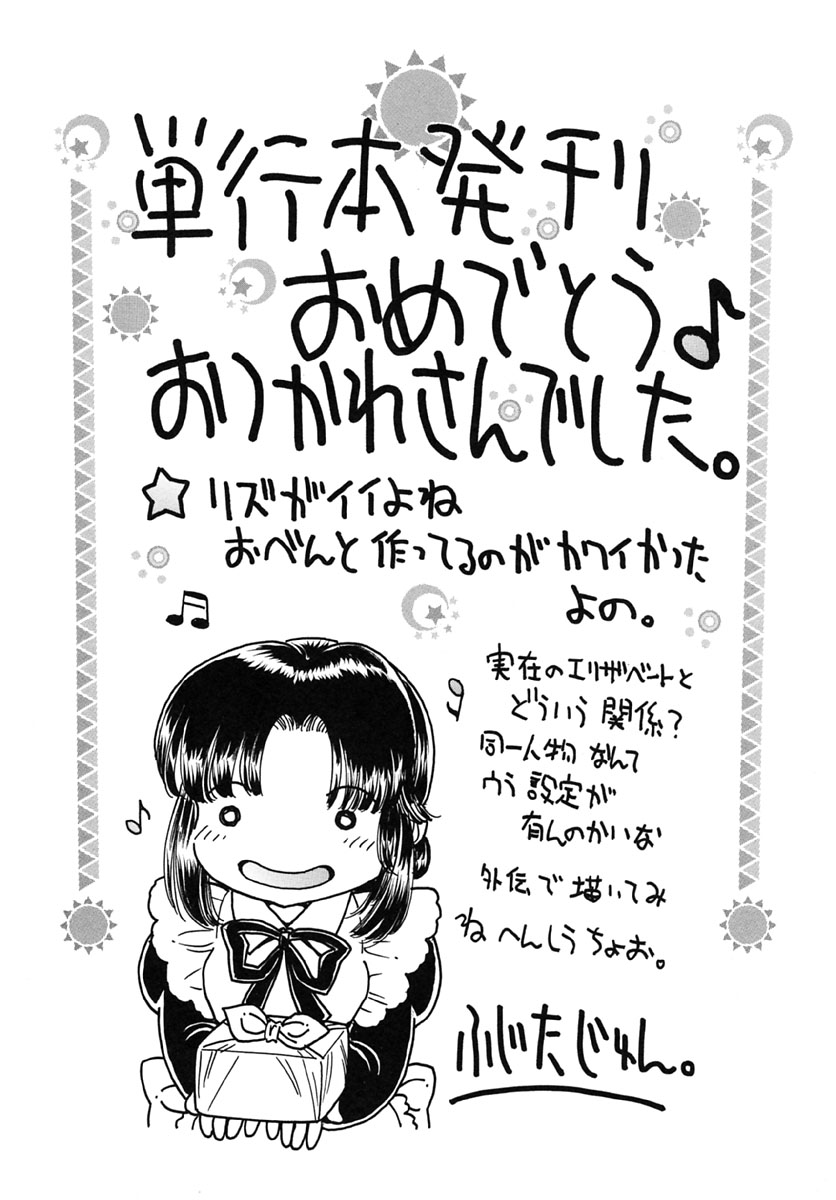 単行本発刊
おめでとう♪
おりかれさんでした。
☆ リズがイイよね
おべんと作ってるのがカワイかった
よの。
実在のエリザベートと
どういう関係?
同一人物なんて
ウラ設定が
有んのかいな
外伝で描いてみ
ね へんしうちょお。
ふじたじゅん。